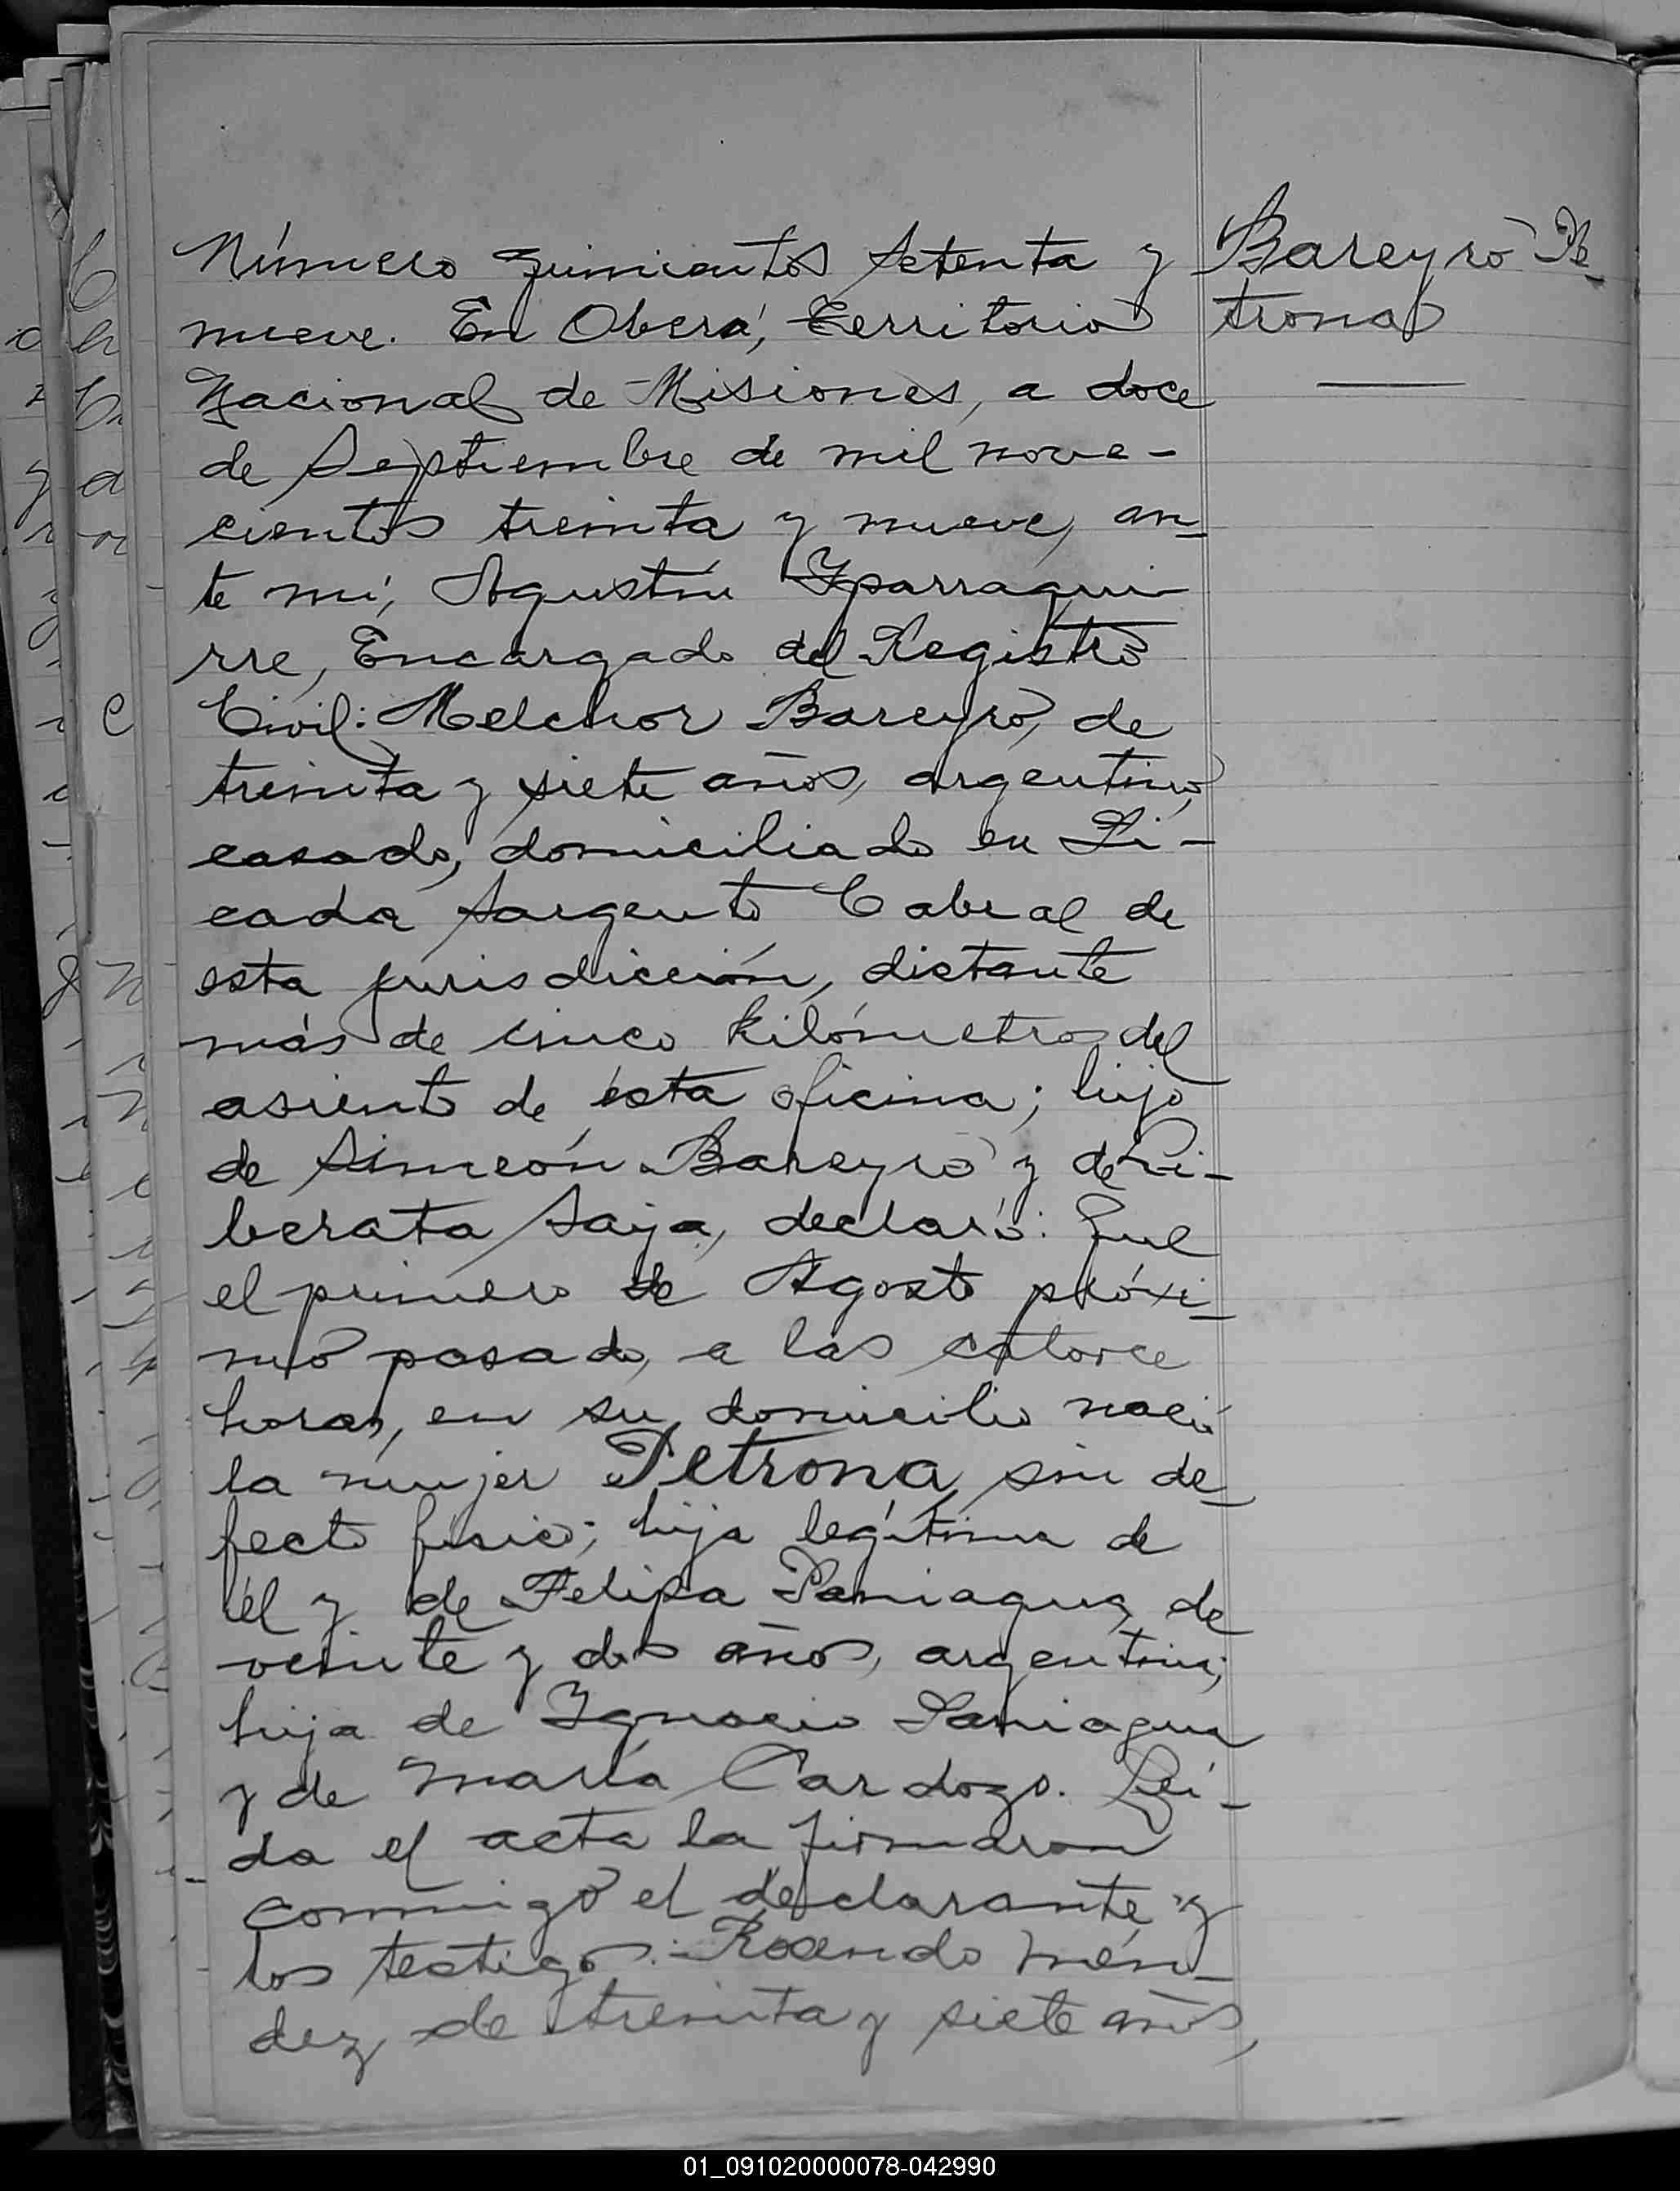 Número quinientos setenta y
nueve. En Oberá, Territorio
Nacional de Misiones, a doce
de Septiembre de mil nove-
cientos treinta y nueve, an-
te mí, Agustín Yparragui-
rre, Encargado del Registro
Civil: Melchor Bareyro, de
treinta y siete años, argentino,
casado, domiciliado en Pi-
cada Sargento Cabral de
esta jurisdicción, distante
más de cinco kilómetros del
asiento de esta oficina; hijo
de Simeón Bareyro y de Li-
berata Saya, declaró: Que
el primero de Agosto próxi-
mo pasado, a las catorce
horas, en su domicilio nació
la mujer Petrona, sin de-
fecto físico; hija legítima de
él y de Felipa Paniagua, de
veinte y dos años, argentina;
hija de Ygnacio Paniagua
y de María Cardozo. Leí-
da el acta la firmaron
conmigo el declarante y
los testigos: Rosendo Mén-
dez, de treinta y siete años,
Bareyro Pe-
trona
01_091020000078-042990